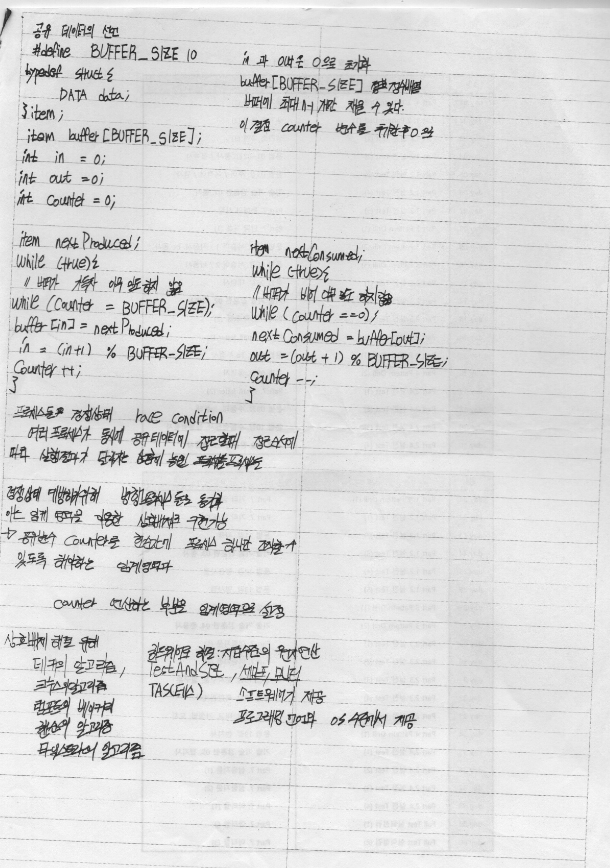 공유 데이터의 선언
#define BUFFER_SIZE 10
typedef struct {
DATA data;
} item;
item buffer [BUFFER_SIZE];
int in = 0;
int out = 0;
int counter = 0;
in 과 out은 0으로 초기화
buffer [BUFFER_SIZE]
버퍼에 최대 n-1 개만 채울 수 있다.
이 결점 counter 변수를 추가한 후 0으로
item nextProduced;
while (true) {
// 버퍼가 가득차 아무 일도 하지 않음
while (counter = BUFFER_SIZE);
buffer [in] = nextProduced;
in = (in+1) % BUFFER_SIZE;
Counter ++;
}
item nextConsumed;
while (true) {
// 버퍼가 비어 아무 일도 하지 않음
while (counter ==0);
nextConsumed = buffer[out];
out = (out + 1) % BUFFER_SIZE;
Counter --;
}
프로세스들은 경쟁상태 race condition
여러 프로세스가 동시에 공유데이터에 접근할때 접근순서에
따라 실행결과가 달라지는 상황에 놓인
경쟁상태 예방하기위해 병행프로세스들은 동기화
이는 임계 영역을 이용한 상호배제로 구현가능
→ 공유변수 Counter를 한순간에 프로세스 하나만 조작할 수
있도록 해야하는 임계영역이다
counter 연산하는 부분을 임계영역으로 설정
상호배제 해결 위해
데커의 알고리즘,
크누스의 알고리즘
램포트의 베이커리
핸슨의 알고리즘
다익스트라의 알고리즘
하드웨어로 해결:
TestAndSet, 세마포, 모니터
TAS(테스)
소프트웨어가 제공
프로그래밍 언어와 OS 수준에서 제공